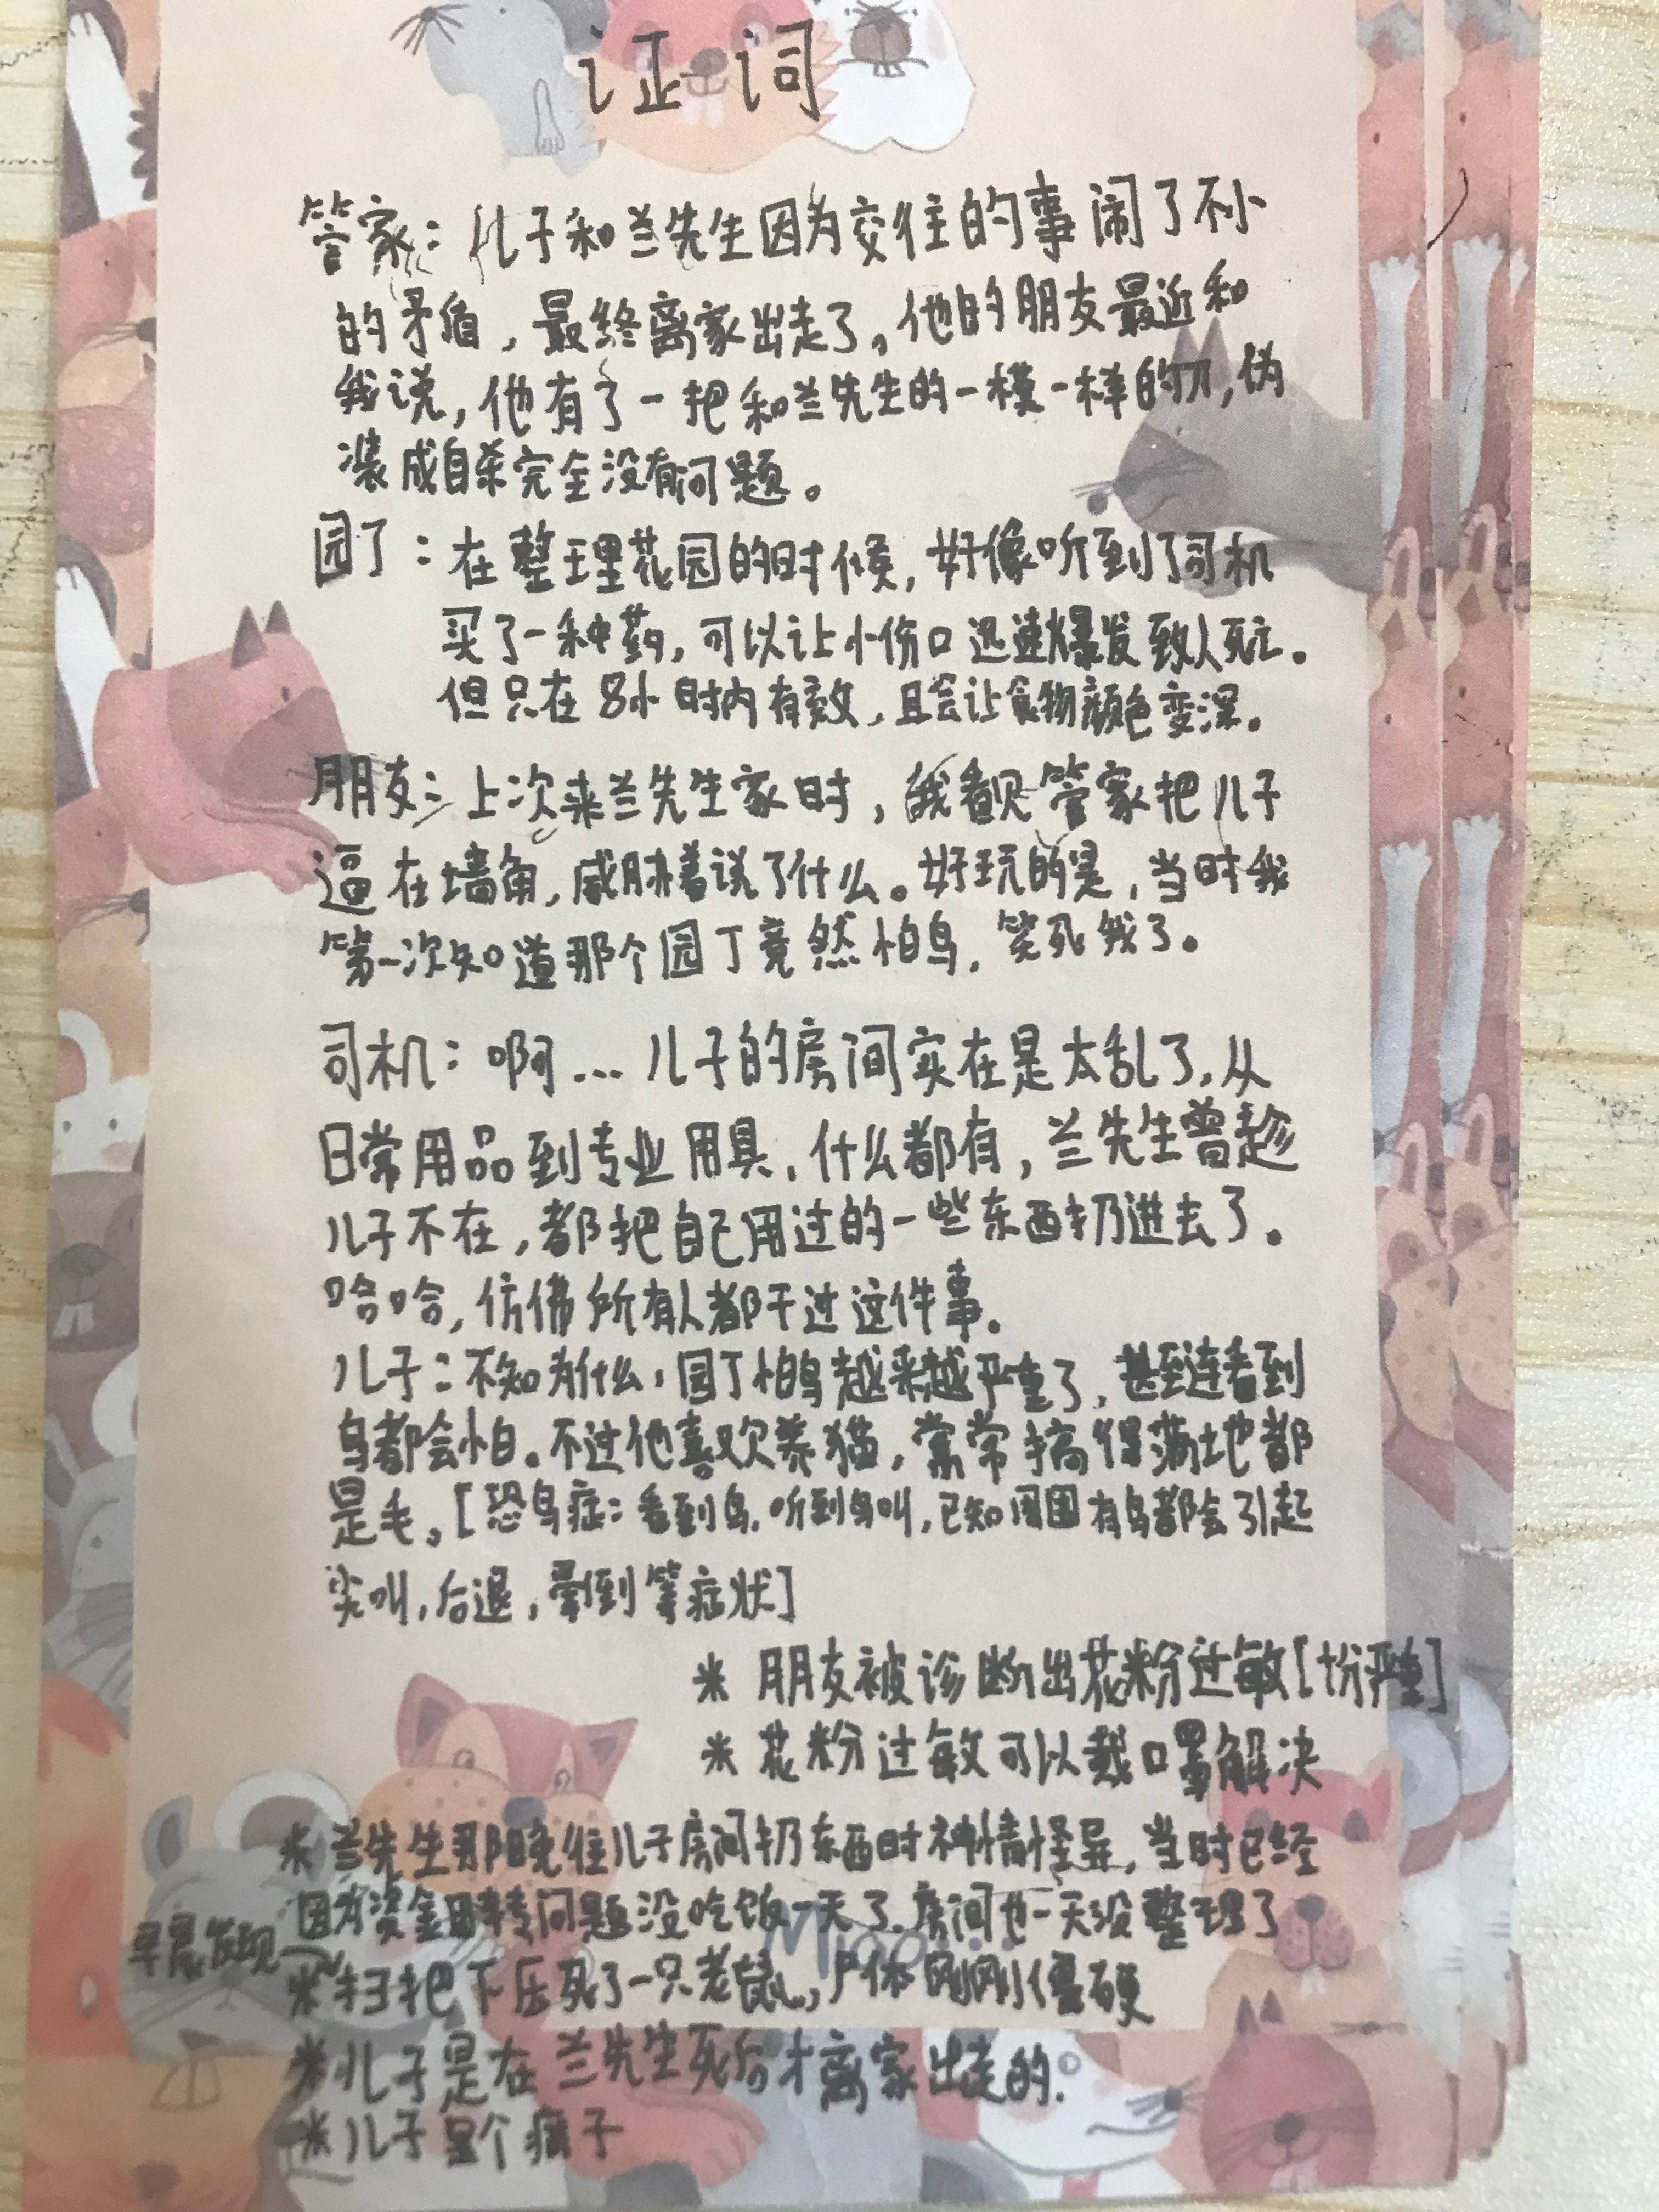 证词
管家：儿子和兰先生因为交往的事闹了不小
的矛盾，最终离家出走了。他的朋友最近和
我说，他有了一把和兰先生的一模一样的刀，伪
装成自杀完全没有问题。
园丁：在整理花园的时候，好像听到了司机
买了一种药，可以让小伤口迅速爆发致人死亡。
但只在8小时内有效，且会让食物颜色变深。
朋友：上次来兰先生家时，我看见管家把儿子
逼在墙角，威胁着说了什么。好玩的是，当时我
第一次知道那个园丁竟然怕鸟，笑死我了。
司机：啊...儿子的房间实在是太乱了，从
日常用品到专业用具，什么都有，兰先生曾趁
儿子不在，都把自己用过的一些东西扔进去了。
哈哈，仿佛所有人都干过这件事。
儿子：不知为什么，园丁怕鸟越来越严重了，甚至连看到
鸟都会怕。不过他喜欢养猫，常常搞得满地都
是毛。[恐鸟症：看到鸟，听到鸟叫，已知周围有鸟都会引起
尖叫，后退，晕倒等症状]
*朋友被诊断出花粉过敏[十分严重]
*花粉过敏可以戴口罩解决
*兰先生那晚往儿子房间扔东西时神情怪异，当时已经
因为资金周转问题没吃饭一天了，房间也一天没整理了
早晨发现
*扫把下压死了一只老鼠，尸体刚刚僵硬
*儿子是在兰先生死后才离家出走的.
*儿子是个疯子